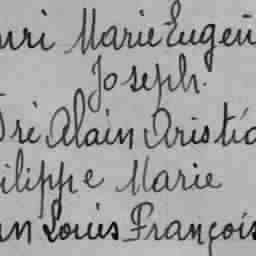 nri Marie Eugèn
Joseph.
dré Alain Aristid
ilippe Marie
an Louis François